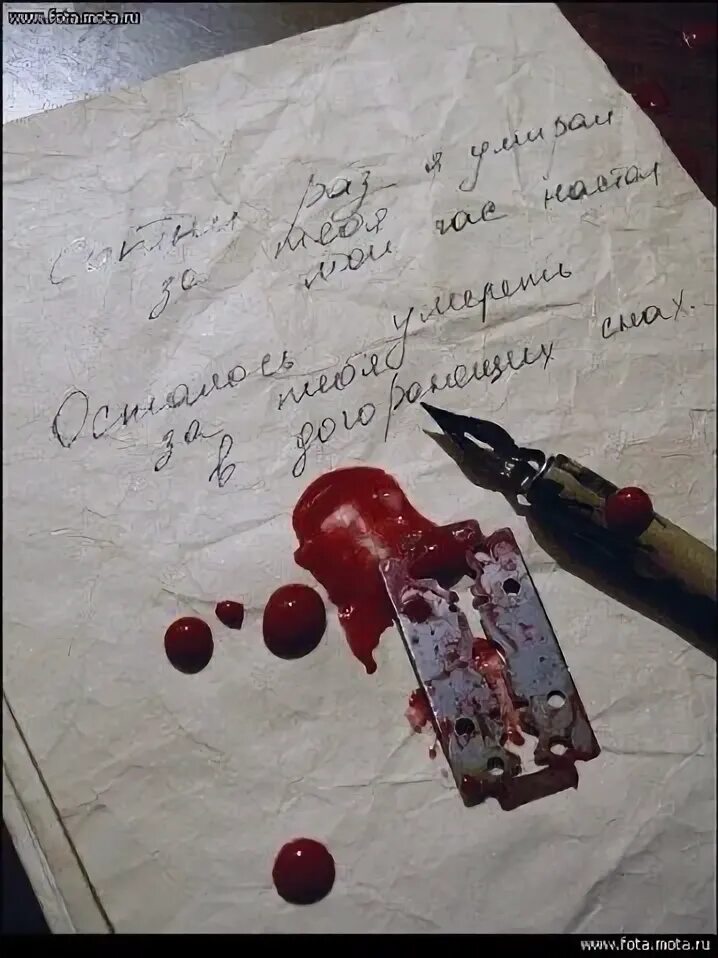 www.fota.mota.ru
Сотый раз я умирал
за тебя
мой час настал
Осталось умереть
за тебя
в догорающих снах.
www.fota.mota.ru